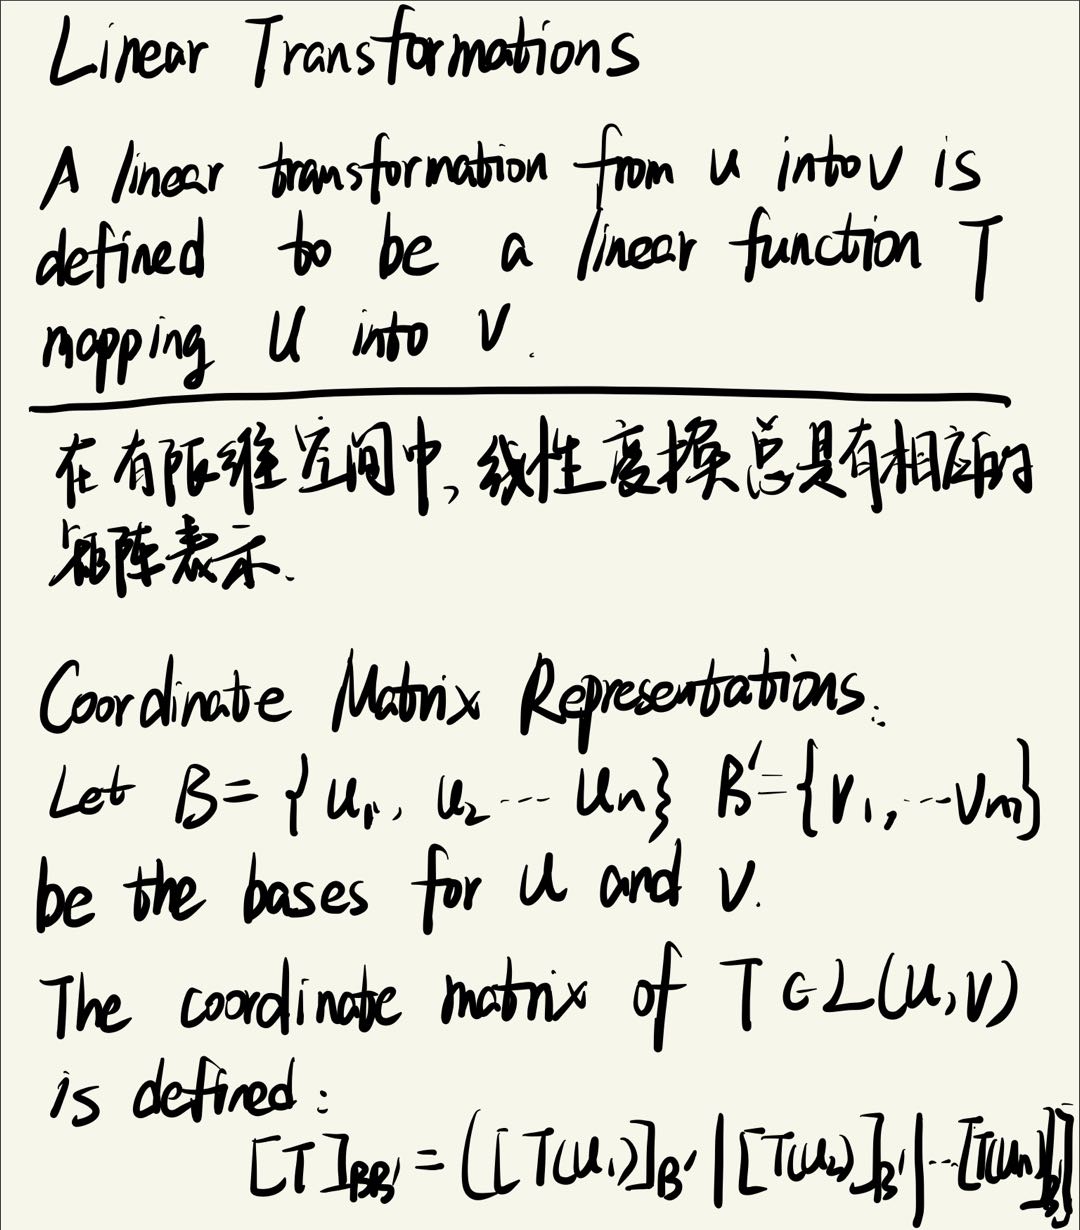 Linear Transformations
A linear transformation from U into V is
defined to be a linear function T
mapping U into V.
在有限维空间中,线性变换总是有相应的
矩阵表示.
Coordinate Matrix Representations.
Let B = { u₁, u₂ ... uₙ} B' = {v₁, ... vₘ}
be the bases for U and V.
The coordinate matrix of T ∈ L(U,V)
is defined:
[T]BB' = ([T(u₁)]B' | [T(u₂)]B' | ... [T(uₙ)]B')